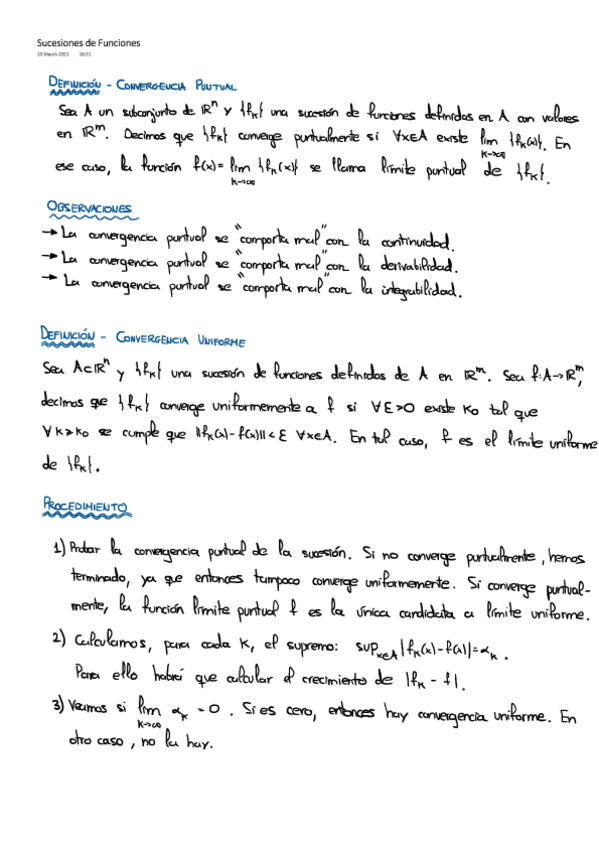 Sucesiones de Funciones
10 March 2021
DEFINICIÓN - CONVERGENCIA PUNTUAL
Sea A un subconjunto de ℝⁿ y {fₖ} una sucesión de funciones definidas en A con valores
en ℝᵐ. Decimos que {fₖ} converge puntualmente si ∀x∈A existe lim k→∞ {fₖ(x)}. En
ese caso, la función f(x)= lim k→∞ {fₖ(x)} se llama límite puntual de {fₖ}.
OBSERVACIONES
→ La convergencia puntual se "comporta mal" con la continuidad.
→ La convergencia puntual se "comporta mal" con la derivabilidad.
→ La convergencia puntual se "comporta mal" con la integrabilidad.
DEFINICIÓN - CONVERGENCIA UNIFORME
Sea A⊂ℝⁿ y {fₖ} una sucesión de funciones definidas de A en ℝᵐ. Sea f:A→ℝᵐ,
decimos que {fₖ} converge uniformemente a f si ∀ε>0 existe k₀ tal que
∀k≥k₀ se cumple que ||fₖ(x)-f(x)||<ε ∀x∈A. En tal caso, f es el límite uniforme
de {fₖ}.
PROCEDIMIENTO
1) Probar la convergencia puntual de la sucesión. Si no converge puntualmente, hemos
terminado, ya que entonces tampoco converge uniformemente. Si converge puntual-
mente, la función límite puntual f es la única candidata a límite uniforme.
2) Calculamos, para cada k, el supremo: supₓ∈A |fₖ(x)-f(x)|=αₖ.
Para ello habrá que calcular el crecimiento de |fₖ - f|.
3) Veamos si lim k→∞ αₖ = 0. Si es cero, entonces hay convergencia uniforme. En
otro caso, no la hay.